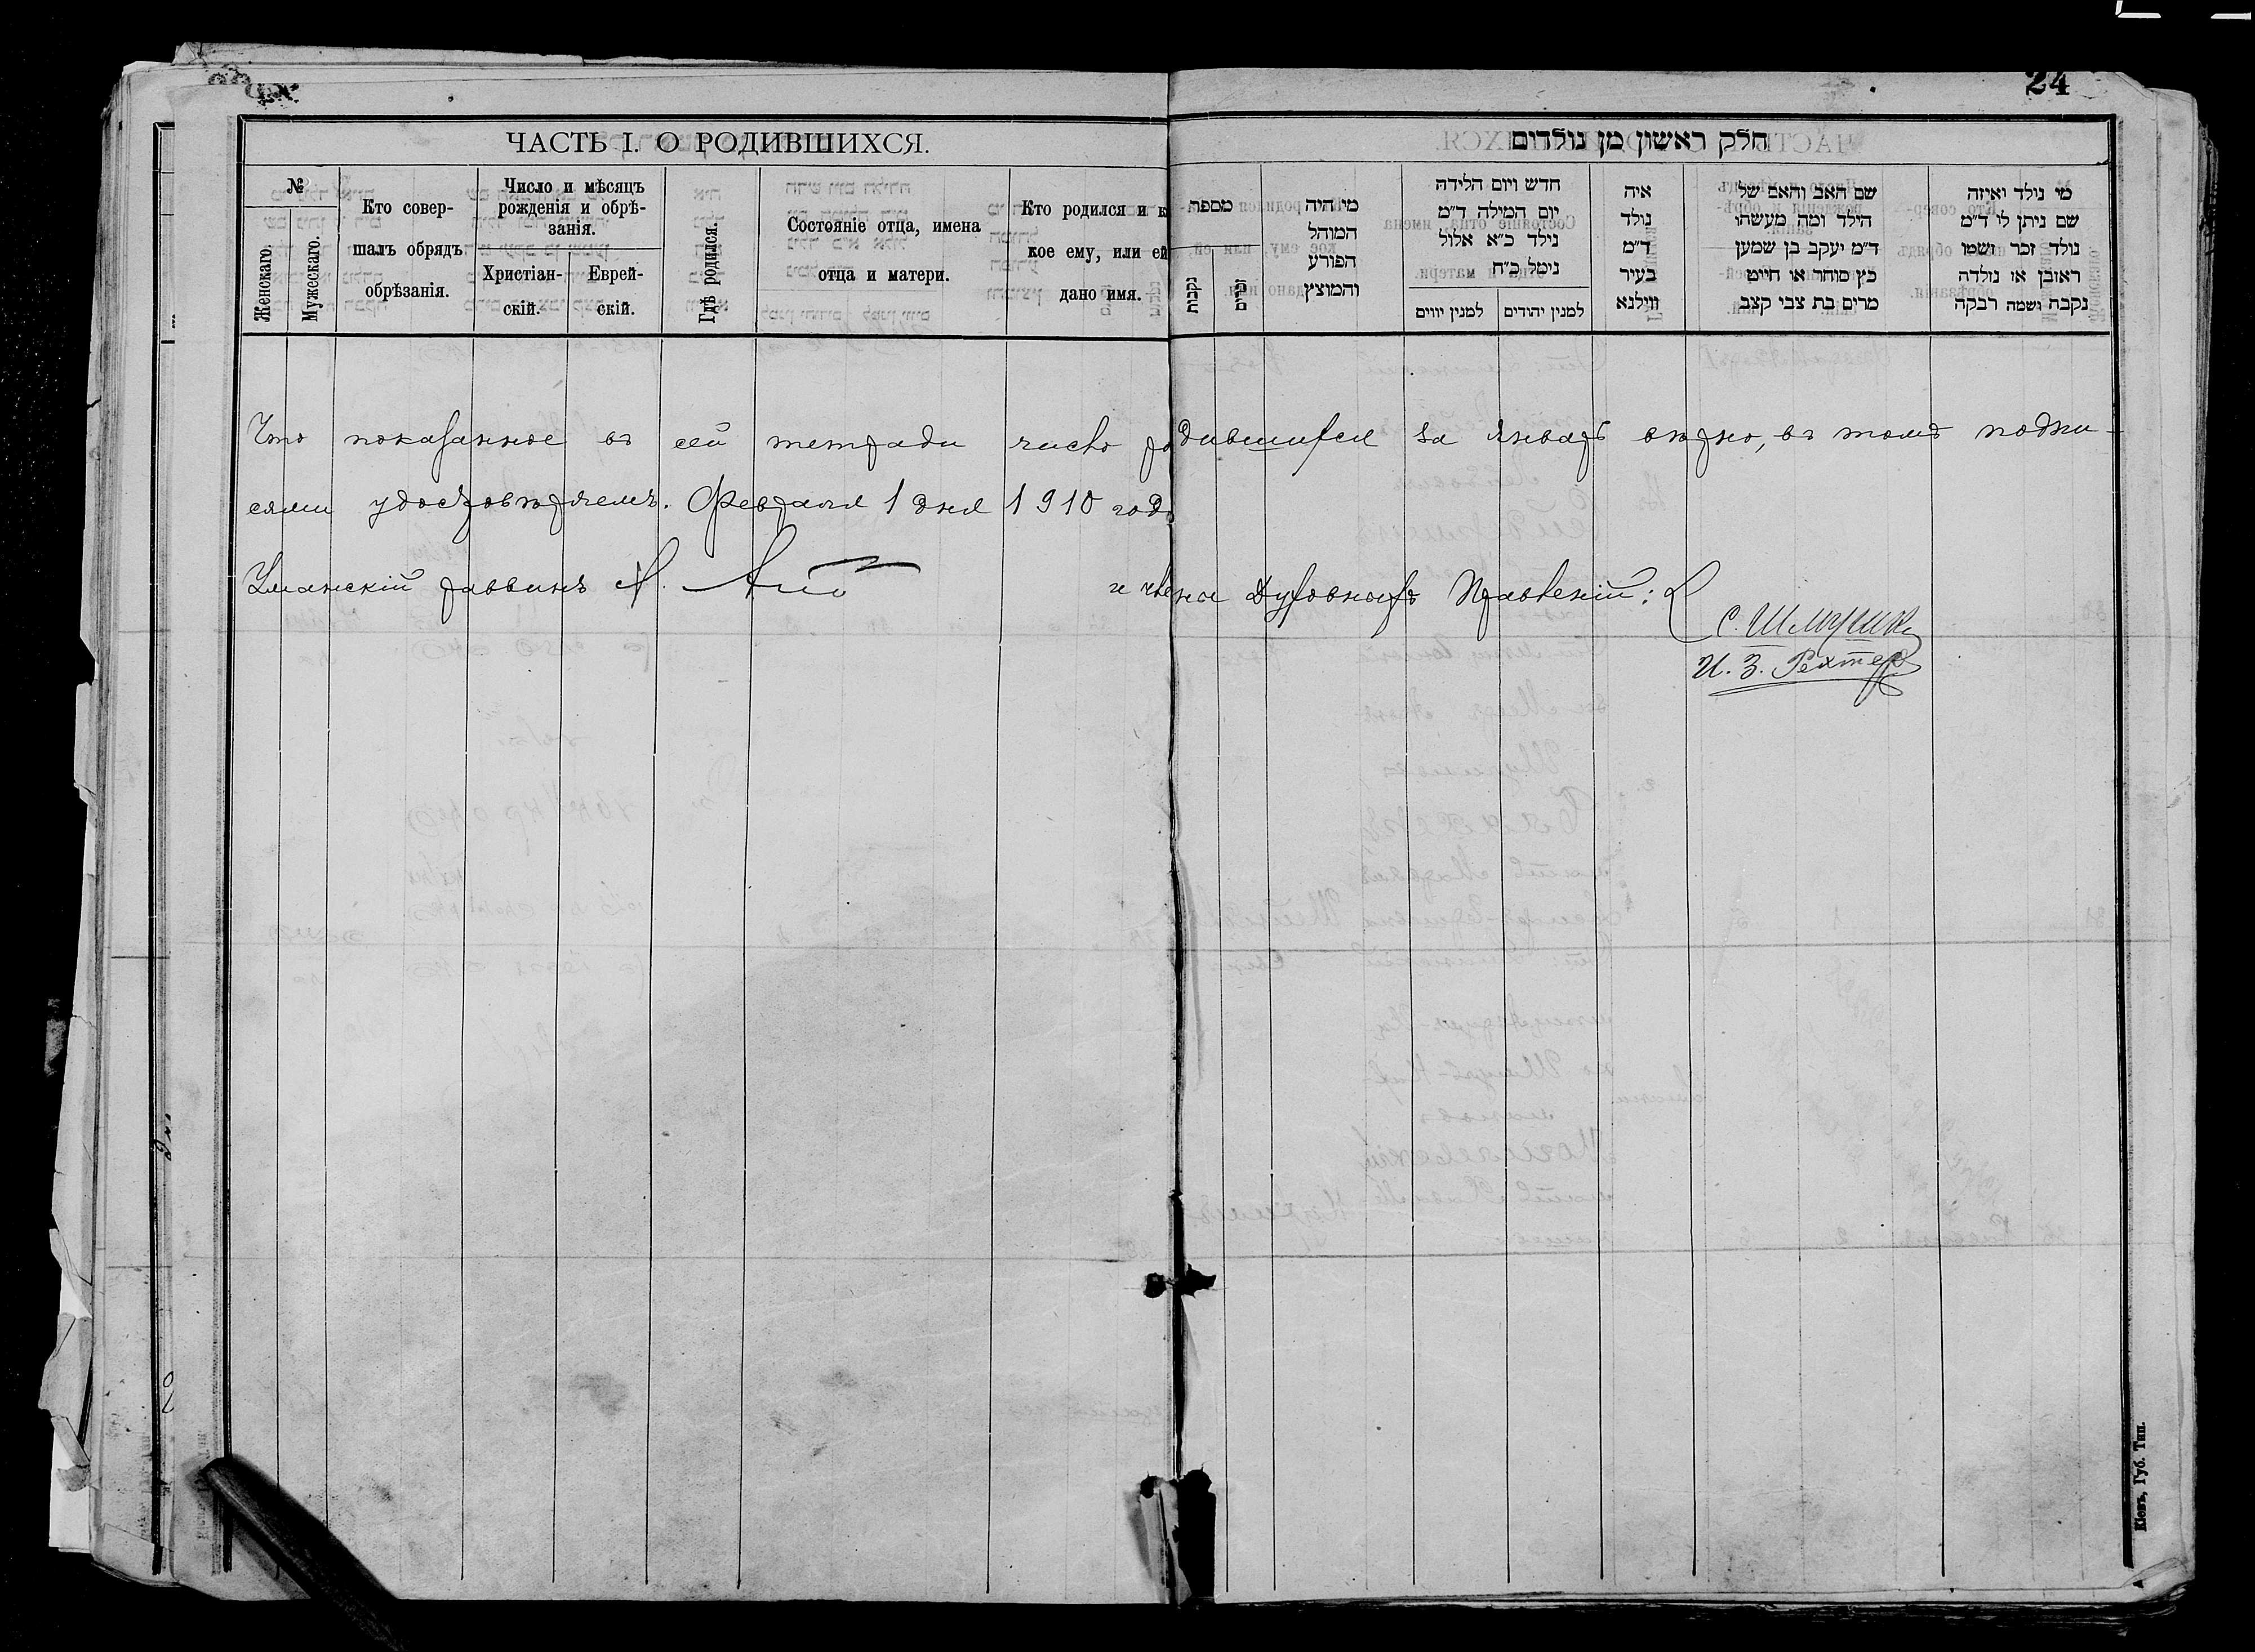 24
ЧАСТЬ I. О РОДИВШИХСЯ.
№
Женскаго.
Мужескаго.
Кто совер-
шалъ обрядъ
обрѣзанія.
Число и мѣсяцъ
рожденія и обрѣ-
занія.
Христіан-
скій.
Еврей-
скій.
Гдѣ родился.
Состояніе отца, имена
отца и матери.
Кто родился и к
кое ему, или ей
дано имя.
חלק ראשון מן נולדים
מי נולד ואיזה
שם ניתן לי ד״מ
נולד זכר ושמו
ראובן או נולדה
נקבה ושמה רבקה
שם האב והאם של
הילד ומה מעשהו
ד״מ יעקב בן שמען
כץ סוחר או חייט
מרים בת צבי קצב
איה
נולד
ד״מ
בעיר
ווילנא
חדש ויום הלידה
יום המילה ד״מ
נילד כ״א אלול
נימל כ״ח
למנין יהודים
למנין יווים
מי היה
המוהל
הפורע
והמוצץ
מספר
זכרים
נקבות
Что показанное въ сей тетради число родившихся за Январь вѣрно, въ томъ подпи-
сями удостовѣряемъ. Февраля 1 дня 1910 года
Уманскій раввинъ
и члены Духовныхъ Правленій:
С. Шмулик
И. З. Рехтер
Кіевъ, Губ. Тип.